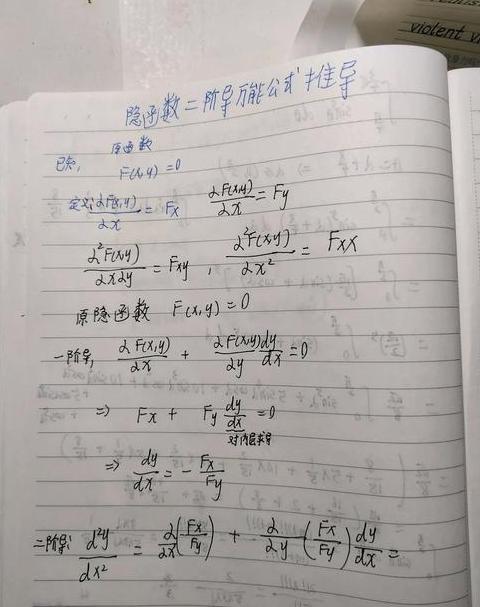 violent
隐函数二阶导万能公式推导
已知, 原函数
F(x,y)=0
定义: ∂F(x,y)/∂x = Fx ∂F(x,y)/∂x = Fy
∂²F(x,y)/∂x∂y = Fxy , ∂²F(x,y)/∂x² = Fxx
原隐函数 F(x,y)=0
一阶导, ∂F(x,y)/∂x + ∂F(x,y)/∂y dy/dx =0
⇒ Fx + Fy dy/dx =0
对内层求导
⇒ dy/dx = - Fx/Fy
二阶导: d²y/dx² = ∂/∂x (Fx/Fy) + ∂/∂y (Fx/Fy) dy/dx =